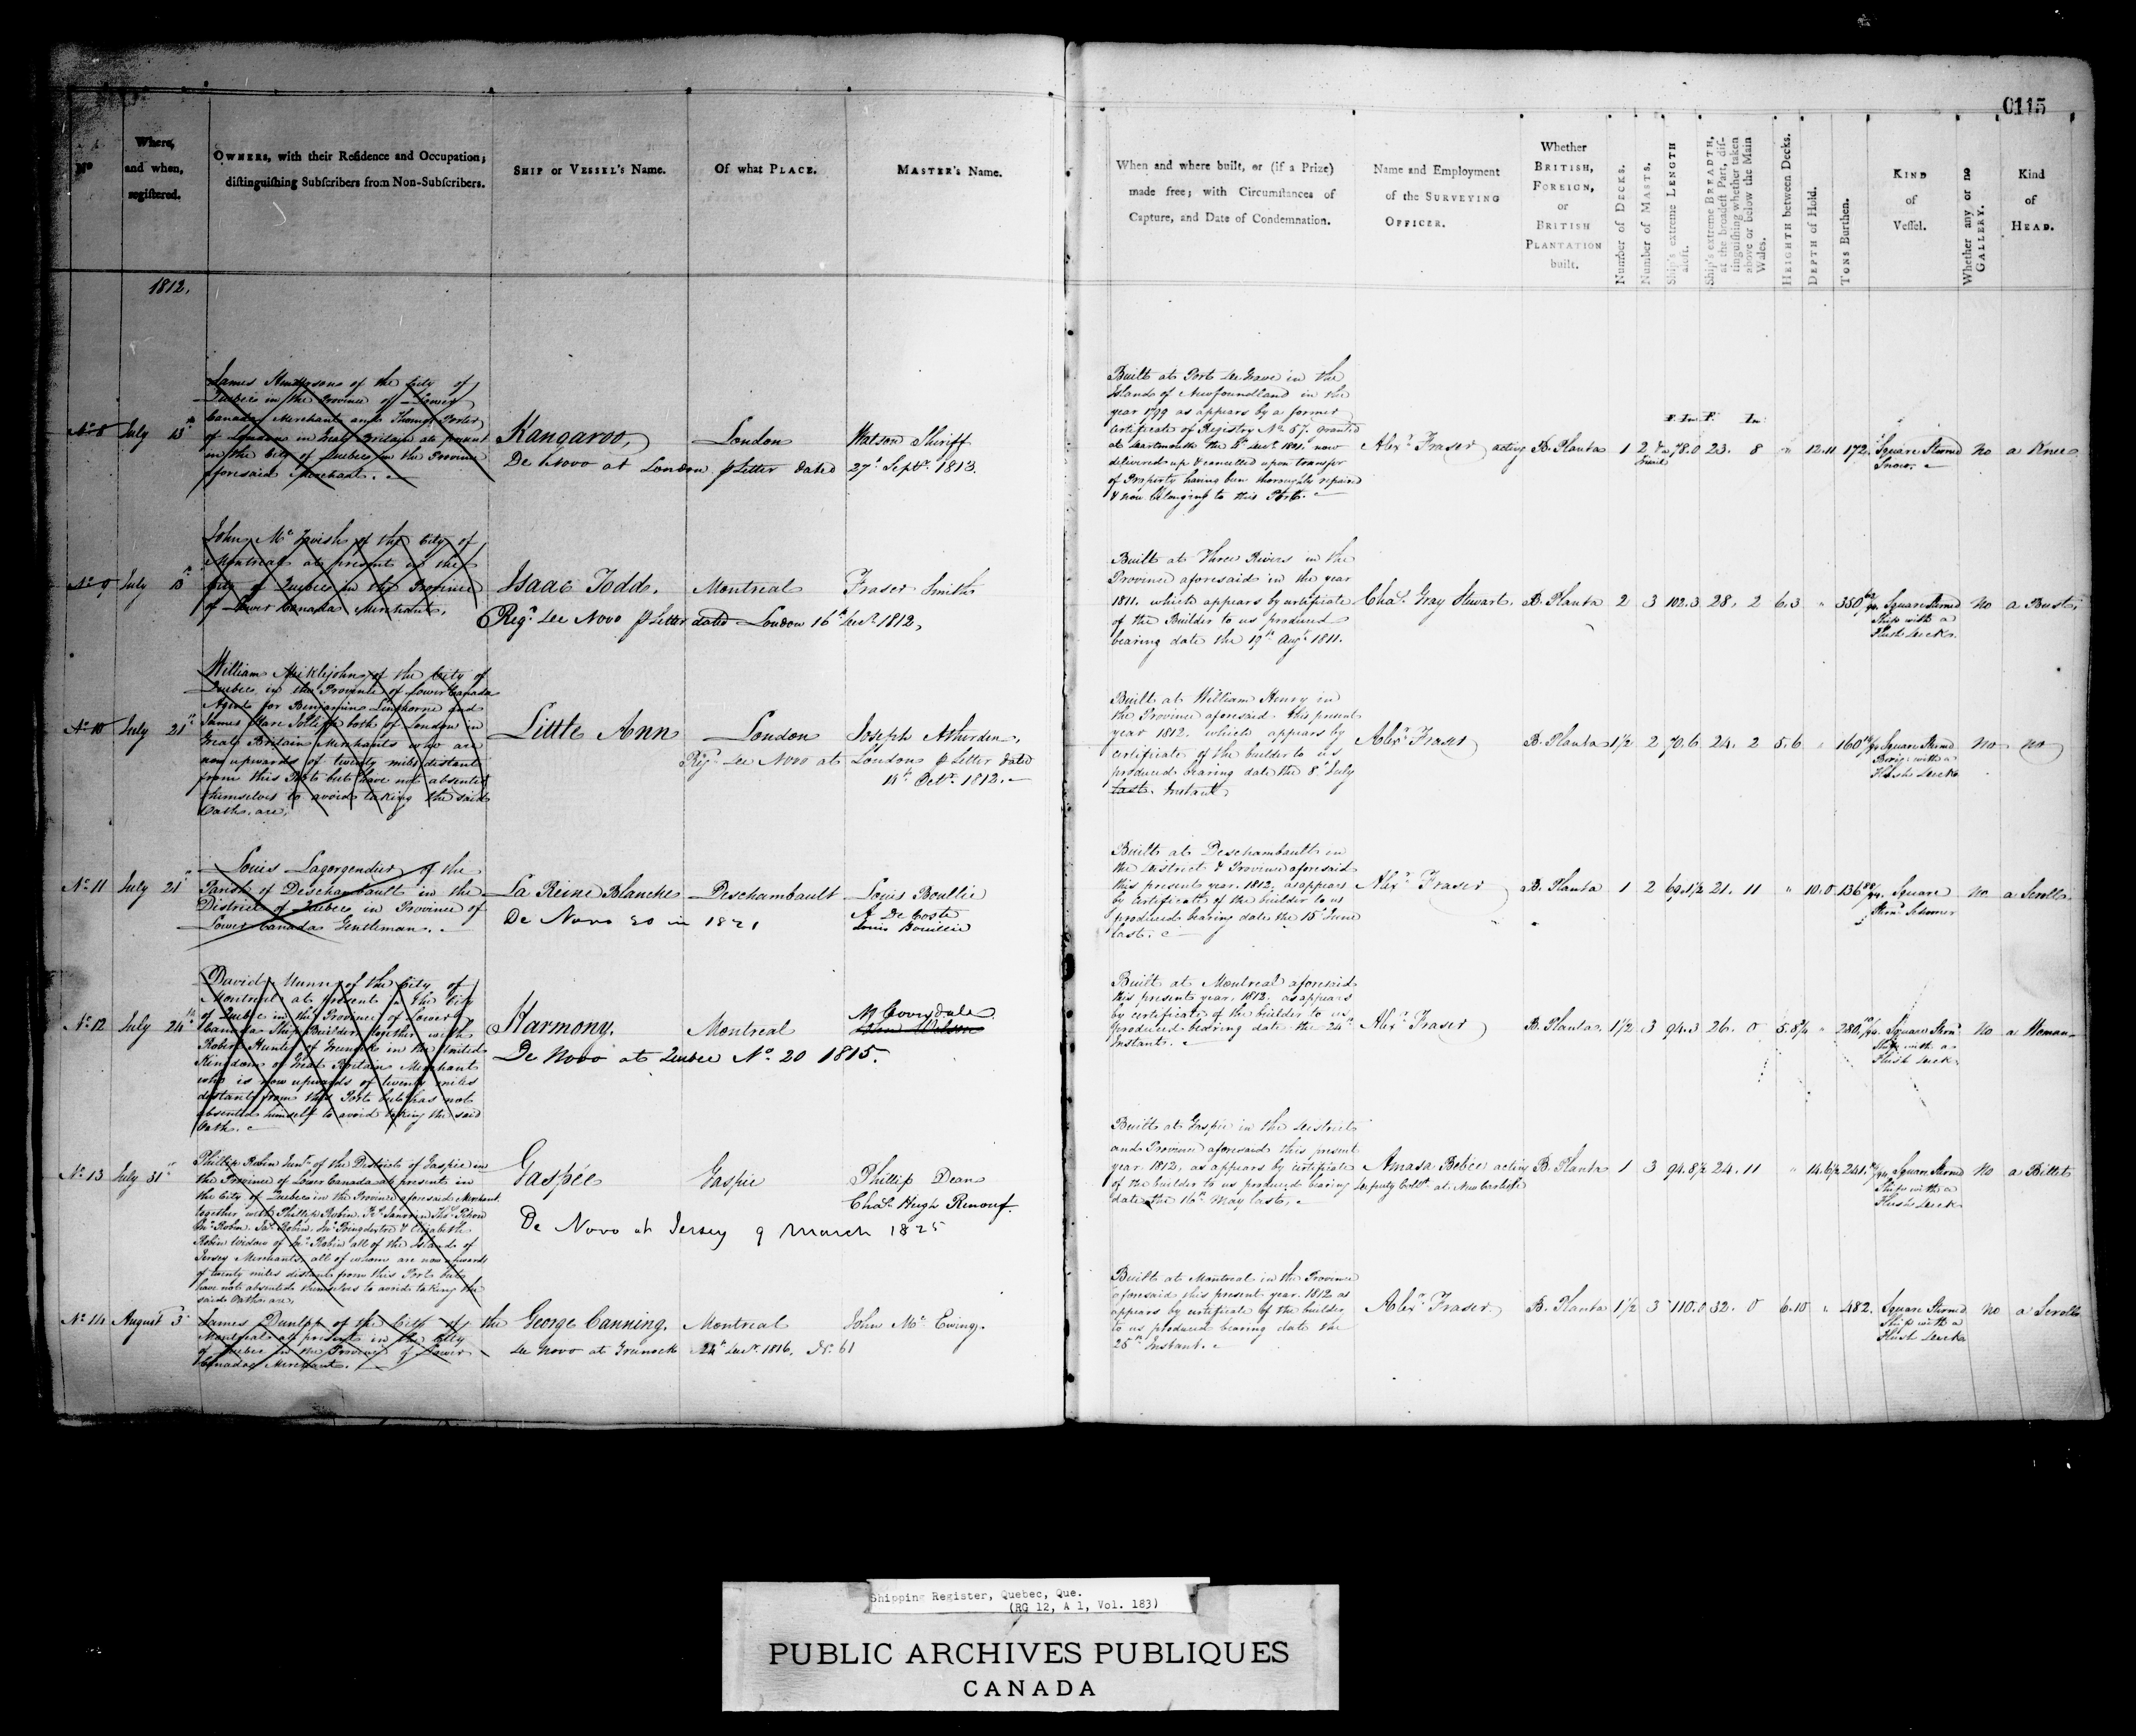 0115
No
Where,
and when,
registered.
OWNERS, with their Residence and Occupation;
distinguishing Subscribers from Non-Subscribers.
SHIP or VESSEL's Name.
Of what PLACE.
MASTER's Name.
When and where built, or (if a Prize)
made free; with Circumstances of
Capture, and Date of Condemnation.
Name and Employment
of the SURVEYING
OFFICER.
Whether
BRITISH,
FOREIGN,
or
BRITISH
PLANTATION
built.
Number of DECKS.
Number of MASTS.
Ship's extreme LENGTH
aloft.
Ship's extreme BREADTH,
at the broadest Part, dis-
tinguishing whether taken
above or below the Main
Wales.
HEIGHTH between Decks.
DEPTH of Hold.
TONS Burthen.
KIND
of
Vessel.
Whether any or no
GALLERY.
Kind
of
HEAD.
1812.
No 8 July 13th
James Henderson of the City of
Quebec in the Province of Lower
Canada Merchant and Thomas Porter
of London in Great Britain at present
in the City of Quebec in the Province
aforesaid Merchant.
Kangaroo, London Watson Shiriff
De Novo at London p Letter dated 27th Septr. 1813.
Built at Port de Grave in the
Island of Newfoundland in the
year 1799 as appears by a former
Certificate of Registry No. 57. granted
at Dartmouth the now
delivered up & cancelled upon transfer
of Property having been thoroughly repaired
& now belonging to this Port.
Alexr. Fraser acting B. Planta 1 2 & a 78.0 23. 8 " 12.11 172. Square Sterned no a Knee
F. In F. In
Snow.
No 9 July 13th
John McTavish of the City of
Montreal at present in the
City of Quebec in the Province
of Lower Canada Merchant,
Isaac Todd. Montreal Fraser Smith
Regd. De Novo p Letter dated London 16th Decr. 1812,
Built at Three Rivers in the
Province aforesaid in the year
1811. which appears by certificate
of the Builder to us produced
bearing date the 19th Augt. 1811.
Chas. Gray Stewart. B. Planta 2 3 102.3 28. 2 6.3 " 350 Square Sterned no a Bust.
Ship with a
Flush Deck.
No 10 July 21st
William Miklejohn of the City of
Quebec in the Province of Lower Canada
Agent for Benjamin Linthorne and
James Jolliff both of London in
Great Britain Merchants who are
now upwards of twenty miles distant
from this Port but have not absented
themselves to avoid taking the said
Oath, are,
Little Ann London Joseph Atherden,
Reg. De Novo at London p Letter dated
14th Octr. 1812.
Built at William Henry in
the Province aforesaid this present
year 1812. which appears by
certificate of the builder to us
produced bearing date the 8th July
last. Instant,
Alexr. Fraser B. Planta 1½ 2 70.6 24. 2 5.6 " 160 Square Sternd no no
Brig with a
Flush Deck
No 11 July 21st
Louis Lagorgendier of the
Parish of Deschambault in the
District of Quebec in Province of
Lower Canada Gentleman.
La Reine Blanche Deschambault Louis Boullie
De Novo 20 in 1821 A De Coste
Louis Bouillie
Built at Deschambault in
the District & Province aforesaid
this present year. 1812. as appears
by certificate of the builder to us
produced bearing date the 15th June
last.
Alexr. Fraser B. Planta. 1 2 69.1½ 21. 11 " 10.0 136 Square no a Scroll.
Sternd Schooner
No 12 July 24th
David Munn of the City of
Montreal at present in the City
of Quebec in the Province of Lower
Canada Ship Builder together with
Robert Hunter of Greenock in the United
Kingdom of Great Britain Merchant
who is now upwards of twenty miles
distant from this Port but has not
absented himself to avoid taking the said
Oath.
Harmony. Montreal M Coverdale
De Novo at Quebec No. 20 1815.
Built at Montreal aforesaid
this present year, 1812. as appears
by certificate of the builder to us
produced bearing date the 24th
Instant.
Alexr. Fraser B. Planta. 1½ 3 94.3 26. 0 5.8¾ " 280 Square Sternd no a Woman
Ship with a
Flush Deck
No 13 July 31st
Phillip Robin Junr. of the District of Gaspie in
the Province of Lower Canada at present in
the City of Quebec in the Province aforesaid Merchant
together with Phillip Robin
Robin Widow of Robin all of the Island of
Jersey Merchants, all of whom are now upwards
of twenty miles distant from this Port but
have not absented themselves to avoid taking the
said Oath are,
Gaspée Gaspie Phillip Dean
Chas. Hugh Renouf.
De Novo at Jersey 9 March 1825
Built at Gaspie in the District
and Province aforesaid this present
year 1812, as appears by certificate
of the builder to us produced bearing
date the 16th May last,
Amasa Bebee acting B. Planta 1 3 94.8½ 24. 11 " 14.6½ 241. Square Sterned no a Billet
Deputy Collr. at New Carlisle
Ship with a
Flush Deck
No 14 August 3d
James Dunlop of the City of
Montreal at present in the City
of Quebec in the Province of Lower
Canada Merchant.
the George Canning. Montreal John McEwing.
De Novo at Greenock 24th Decr. 1816. No. 61
Built at Montreal in the Province
aforesaid this present year. 1812 as
appears by certificate of the builder
to us produced bearing date the
25th Instant.
Alexr. Fraser B. Planta 1½ 3 110.0 32. 0 6.10 " 482. Square Sterned no a Scroll
Ship with a
Flush Deck
Shipping Register, Quebec, Que.
(RG 12, A 1, Vol. 183)
PUBLIC ARCHIVES PUBLIQUES
CANADA